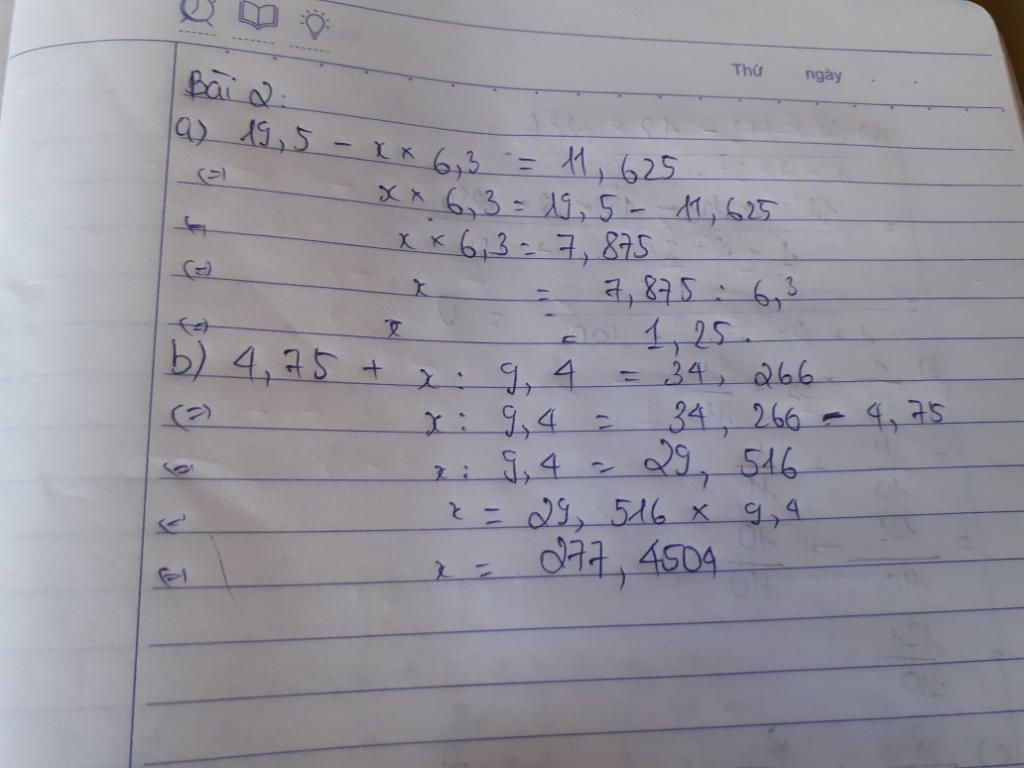 Thứ ngày
Bài 2:
a) 19,5 - x × 6,3 = 11,625
(=) x × 6,3 = 19,5 - 11,625
x × 6,3 = 7,875
(=) x = 7,875 : 6,3
(=) x = 1,25.
b) 4,75 + x : 9,4 = 34,266
(=) x : 9,4 = 34,266 - 4,75
(=) x : 9,4 = 29,516
x = 29,516 × 9,4
(=) x = 277,4504